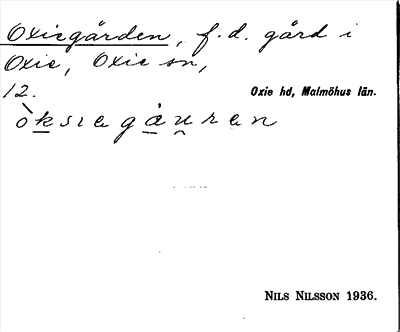 Oxiegården, f.d. gård i
Oxie, Oxie sn,
12. Oxie hd, Malmöhus län.
òksıegåu̯ren
NILS NILSSON 1936.